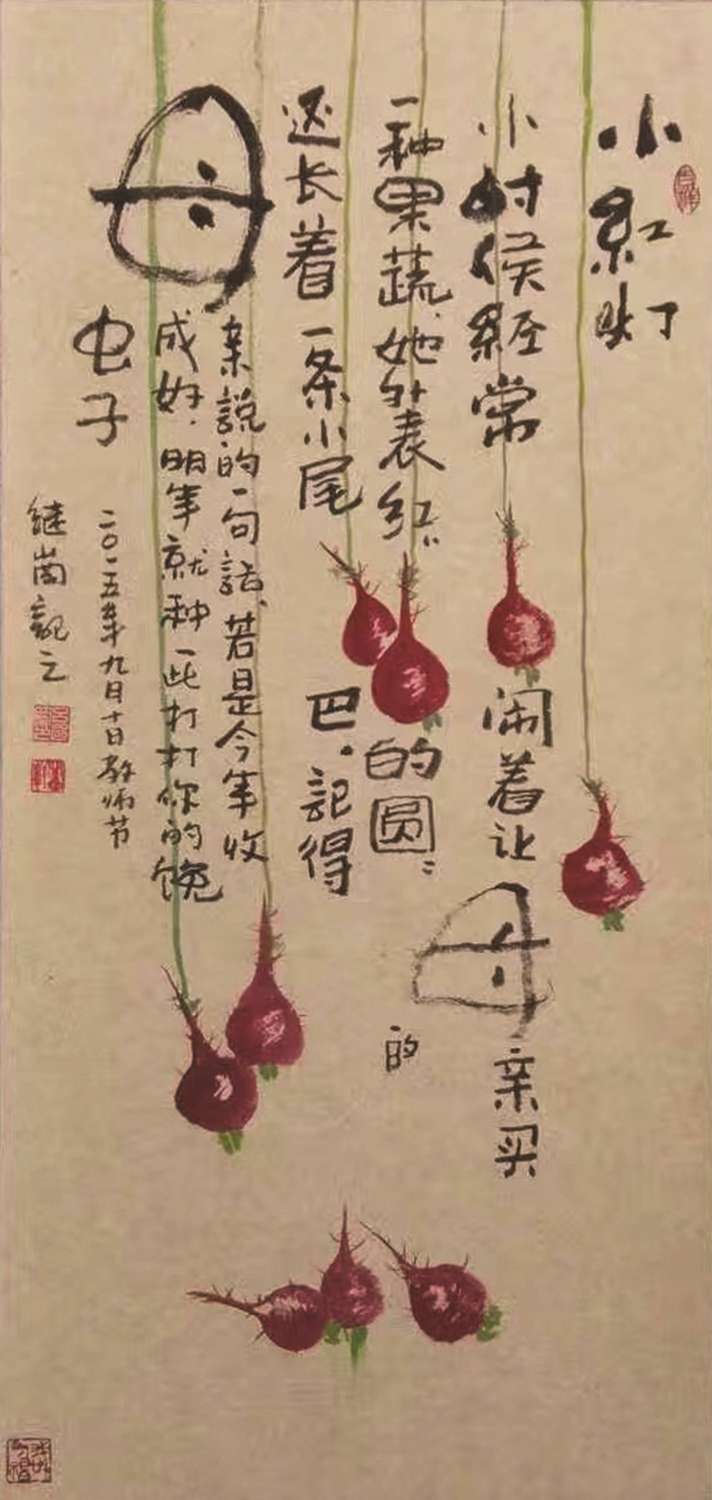 小紅灯
小时侯经常闹着让母亲买
的
一种果蔬,她外表红〃的圆〃
还长着一条小尾巴。記得
母亲説的一句話、若是今年收
成好.明年就种一些打打你的馋
虫子
二〇一五年九月十日教师节
继崗記之